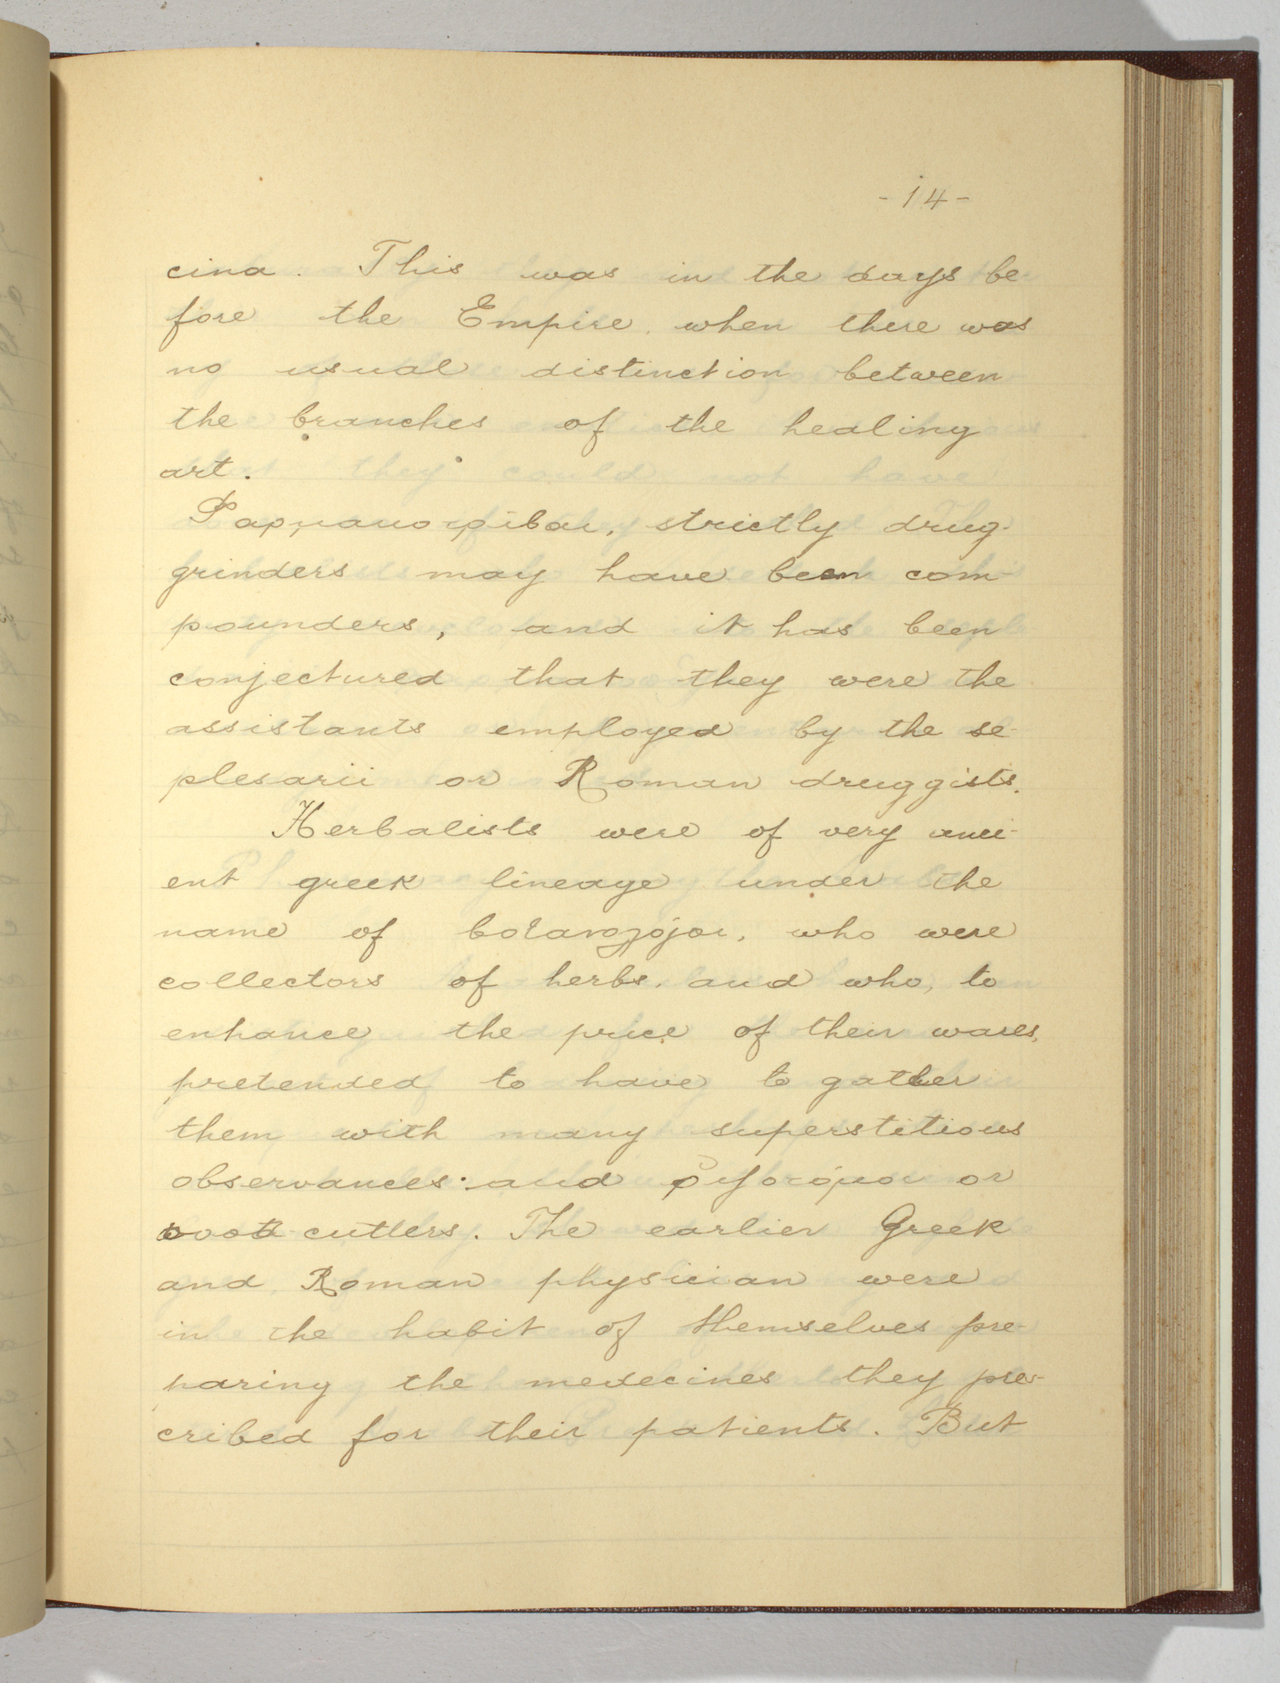 -14-
cina. This was in the days be-
fore the Empire, when there was
no usual distinction between
the branches of the healing
art.
strictly drug-
grinders may have been com-
pounders, and it has been
conjectured that they were the
assistants employed by the se-
plesarii or Roman druggists.
Herbalists were of very anci-
ent greek lineage under the
name of who were
collectors of herbs, and who, to
enhance the price of their wares,
pretended to have to gather
them with many superstitious
observances: and or
cutlers. The earlier Greek
and Roman physician were
in the habit of themselves pre-
paring the medecines they pres-
cribed for their patients. But